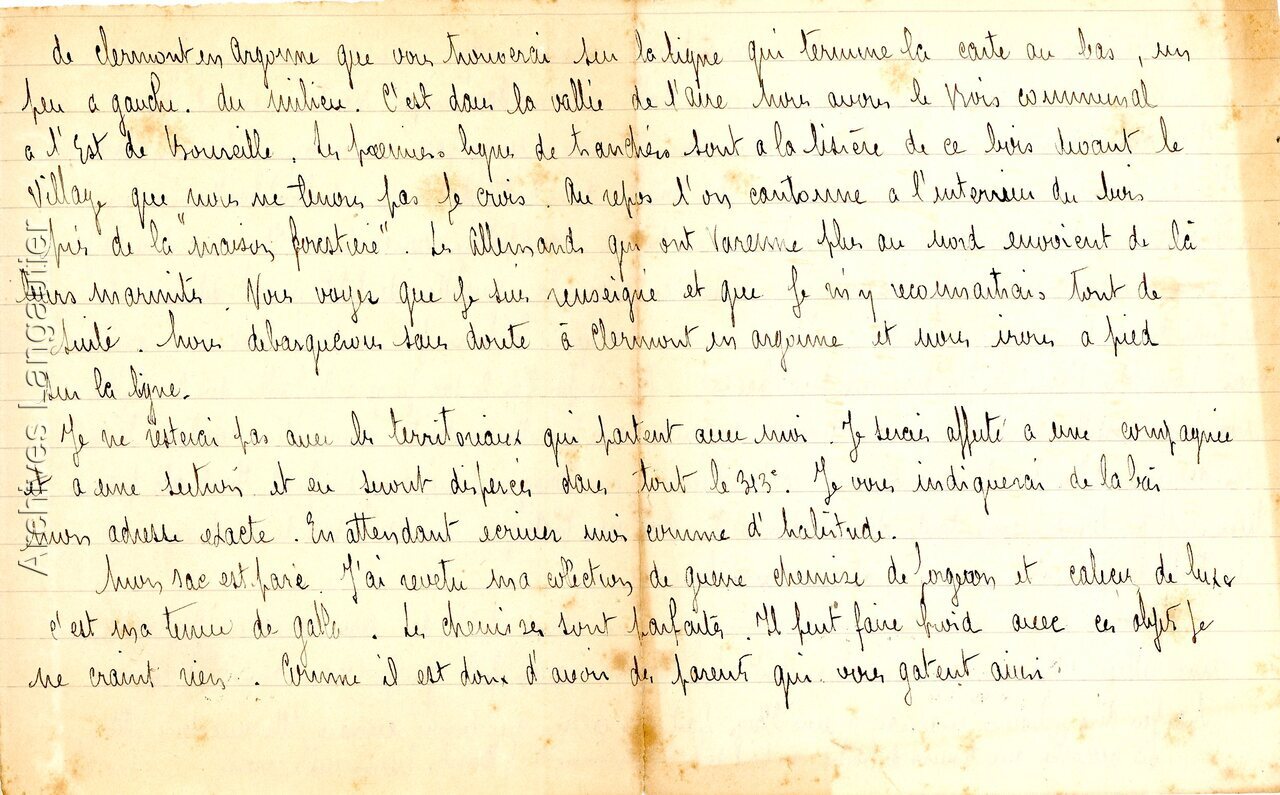 de clermont en Argonne que vous trouverai sur la ligne qui termine la carte au bas, un
peu a gauche. du milieu. C'est dans la vallée de l'aire Nous avons le Bois communal
a l'Est de Boureille. Les premiers lignes de tranchées sont a la lisière de ce bois devant le
Village que nous ne tenons pas je crois. Au repos l'on cantonne a l'interrieu du bois
près de la "maison forestière". Les Allemands qui ont Varenne plus au nord envoient de là
leurs marmites. Vous voyez que je suis renseigné et que je m'y reconnaitrais tout de
suite. Nous debarquerons sans doute à Clermont en argonne et nous irons a pied
sur la ligne.
Je ne resterai pas avec les territoriaux qui partent avec moi. Je serais affecté a une compagnie
et a une section et on seront dispercés dans tout le 313e. Je vous indiquerai de la bàs
mon adresse exacte. En attendant ecrivez moi comme d'habitude.
Mon sac est paré. J'ai revetu ma collection de guerre chemise de forgeron et caleçon de luxe
c'est ma tenue de gala. Les chemises sont parfaites. Il peut faire froid avec ces objets je
ne craint rien. Comme il est doux d'avoir des parents qui vous gatent ainsi
Archives Langagnier